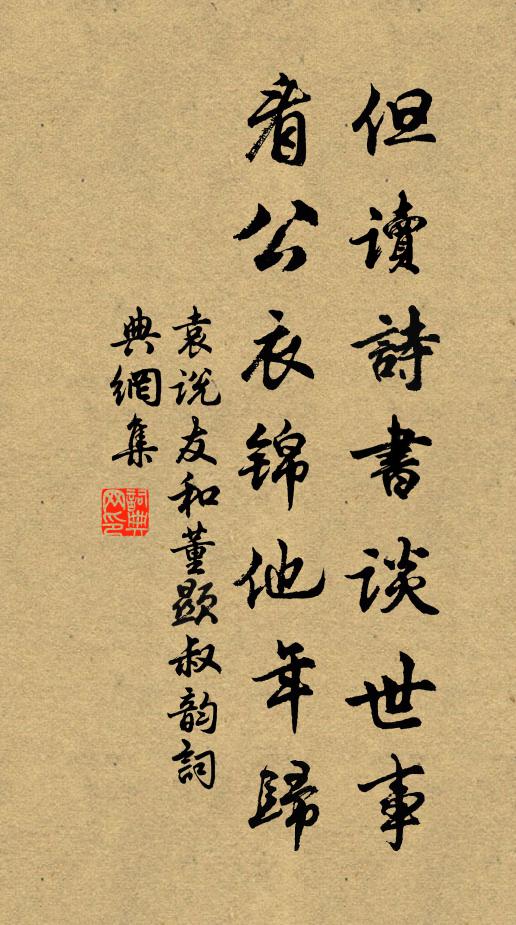 但讀詩書談世事
看公衣錦他年歸
袁説友和董顯叔韵詞
典網集
詞典
网印